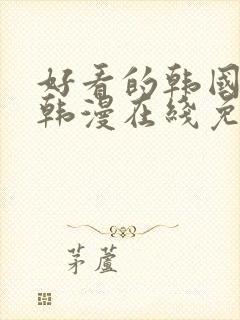 好看的韩国
韩漫在线免
茅芦